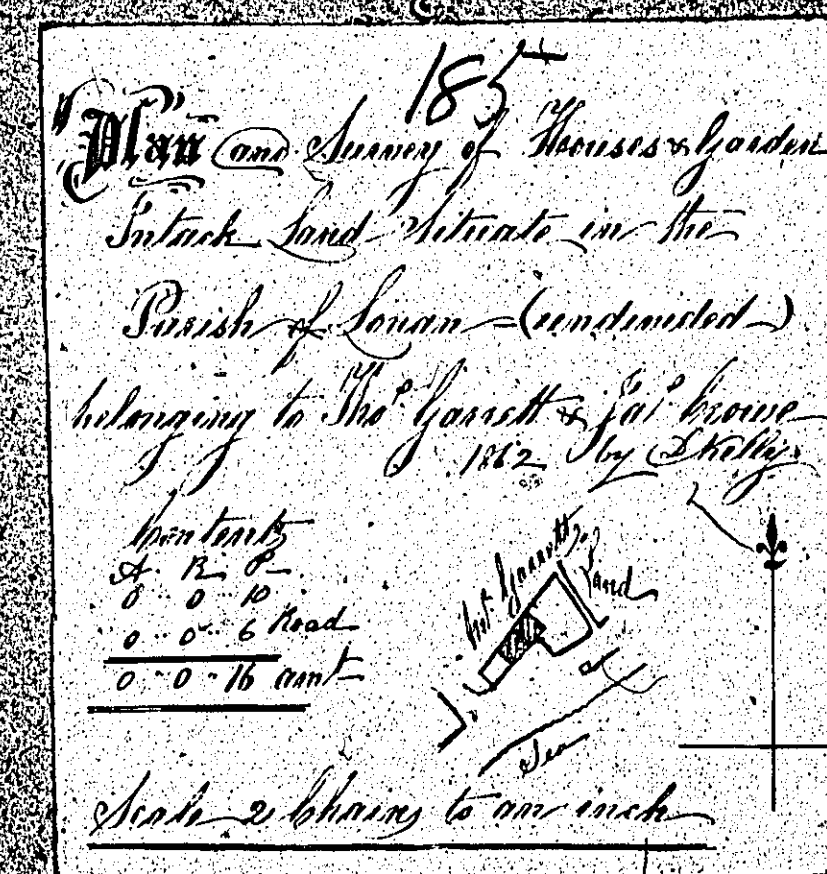 185
Plan and Survey of Houses & Garden
Intack Land Situate in the
Parish of Lonan (undivided)
belonging to Thoˢ Garrett & Jaˢ Crowe
1862 by D Kelly
Contents
A. R. P.
0 .. 0 .. 10
0 .. 0 .. 6 Road
0 .. 0 .. 16 amt
Garrett
Land
Sea
Scale 2 Chains to an inch